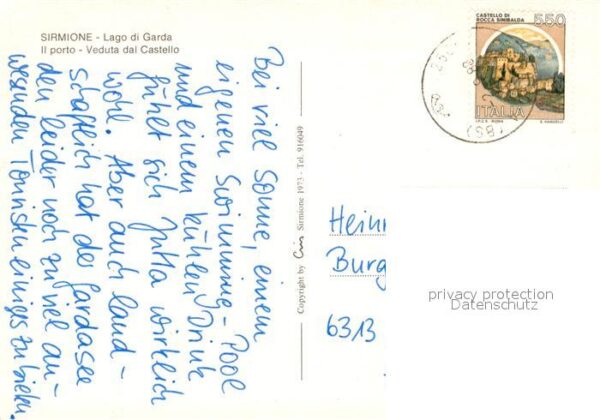 SIRMIONE - Lago di Garda
Il porto - Veduta dal Castello
Bei viel Sonne, einem
eigenen Swimming-Pool
und einem kühlen Drink
fühlt sich Jutta wirklich
wohl. Aber auch land-
schaftlich hat der Gardasee
den leider noch zu viel an-
wesenden Touristen einiges zu bieten.
Copyright by Sirmione 1973 - Tel. 916049
CASTELLO DI
ROCCA SINIBALDA
550
ITALIA
I.P.Z.S. ROMA
(BS)
Heinr
Burg
6313
privacy protection
Datenschutz